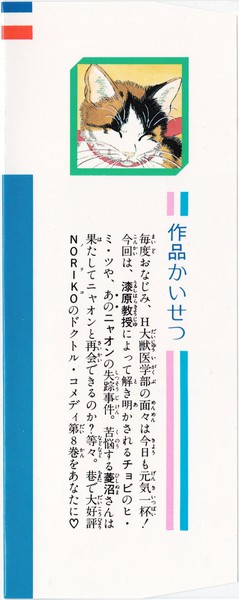 作品かいせつ
毎度おなじみ、H大獣医学部の面々は今日も元気一杯！
今回は、漆原教授によって解き明かされるチョビのヒ・
ミ・ツや、あのニャオンの失踪事件。苦悩する菱沼さんは
果たしてニャオンと再会できるのか？等々。巷で大好評
NORIKOのドクトル・コメディ第8巻をあなたに♡